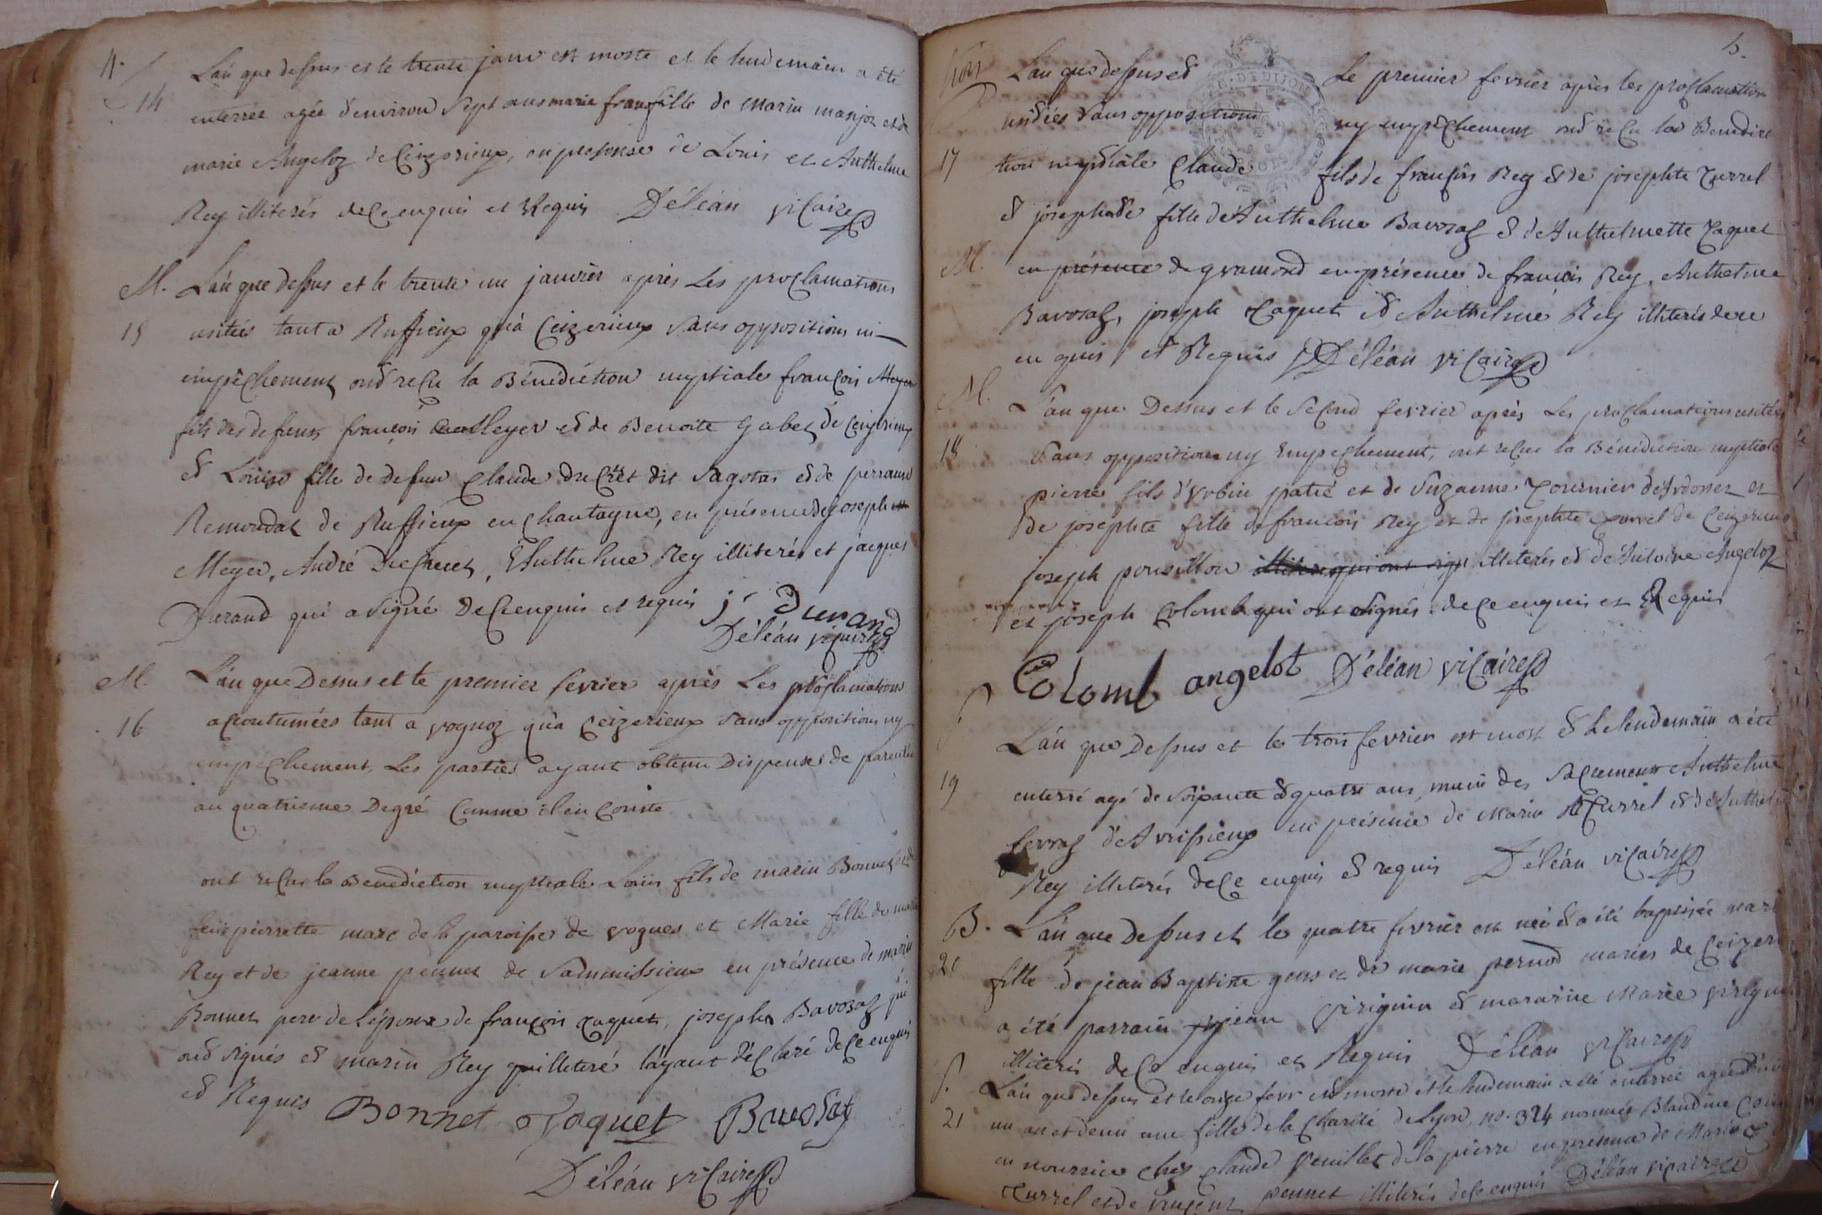 4.
S. L'an que dessus et le trente janv est morte et le lendemain a été
14 enterrée agée d'environ sept ans marie fran fille de marin manjoz et de
marie Angeloz de Ceizerieux, en presense de Louis et Anthelme
Rey illiterés de ce enquis et Requis Déléan vicaire
M. L'an que dessus et le trente un janvier après Les proclamations
15 usitées tant a Ruffieux qu'à Ceizerieux sans oppositions ni
empêchement ont reçu la Bénédiction nuptiale françois Meyer
fils des defunts françois Meyer et de Benoite Gabet de Ceizerieux
et Louise fille de defunt Claude Ducret dit Sagotas et de perraune
Remondat de Ruffieux en Chautagne, en présence de joseph
Meyer, André Ducheret, Anthelme Rey illiterés et jacques
Durand qui a signé de ce enquis et requis j. Durand
Déléan vicaire
M. L'an que Dessus et le premier fevrier après Les proclamations
16 acoutumées tant a vognoz qu'a Ceizerieux sans oppositions ny
empêchement, Les parties ayant obtenu Dispenses de parenté
au quatrieme Degré Comme il en Conste
ont reçu la Benediction nuptiale Louis fils de marin Bonnet et de
pierrette marc de la paroisse de vognes et Marie fille de
Rey et de jeanne pennet de en présence de marin
Bonnet pere de L'époux de françois Jaquet, joseph Bavosaz qui
ont signés et marin Rey qu'illiteré l'ayant déclaré de ce enquis
et Requis Bonnet Jaquet Bavosaz
Déléan vicaire
5.
L'an que dessus et Le premier fevrier après les proclamations
usitées sans oppositions ny empêchement ont reçu la Benedic
17 tion nuptiale Claude fils de françois Rey et de josephte Turrel
et josephte fille d'Anthelme Bavosaz et d'Anthelmette Jaquet
M. en présence de gramond en présence de francois Rey, Anthelme
Bavosaz, joseph Jaquet et Anthelme Rey illiterés de ce
enquis et Requis Déléan vicaire
M. L'an que Dessus et le second fevrier après Les proclamations usitées
18 sans oppositions ny Empechement, ont reçu la Bénédiction nuptiale
pierre fils d'Urbin patié et de Suzanne fournier d'Ardosset et
de josephte fille de francois Rey et de josephte Turrel de Ceizerieux
joseph ponsillon illiterés et d'Antoine Angeloz
et joseph Colomb qui ont signés de ce enquis et Requis
Colomb angelot Déléan vicaire
S. L'an que Dessus et le trois fevrier est mort et Le lendemain a été
19 enterré agé de soixante et quatre ans, muni des Sacrement Anthelme
fevraz d'Avrissieux en présence de Marin Turrel et d'Anthelme
Rey illiterés de ce enquis et requis Déléan vicaire
B. L'an que Dessus et le quatre fevrier est née et a été baptisée marie
20 fille de jean Baptiste gens et de marie pernod mariés de Ceizerieux
a été parrain jean virignin et maraine Marie virignin
illiterés de ce enquis et Requis Déléan vicaire
S. L'an que dessus et le onze fevr est morte et le lendemain a été enterrée agée d'environ
21 un an et demi une fille de la Charité de Lyon no. 324 nommée Blandine
en nourrice chez Claude veuillet de la pierre en présence de Marin
Turrel et de vincent pennet illiterés de ce enquis Déléan vicaire